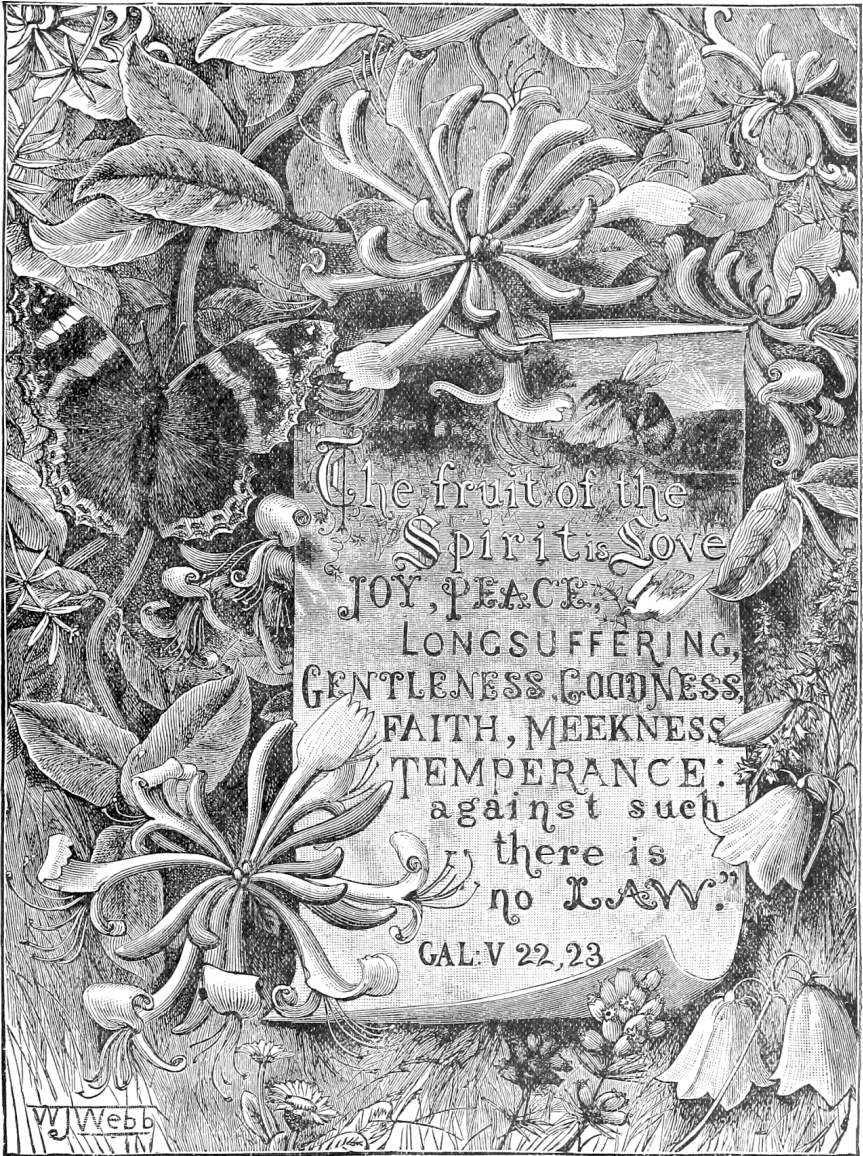 "The fruit of the
Spirit is Love
JOY, PEACE,
LONGSUFFERING,
GENTLENESS, GOODNESS,
FAITH, MEEKNESS
TEMPERANCE:
against such
there is
no LAW."
GAL: V 22, 23
WJWebb